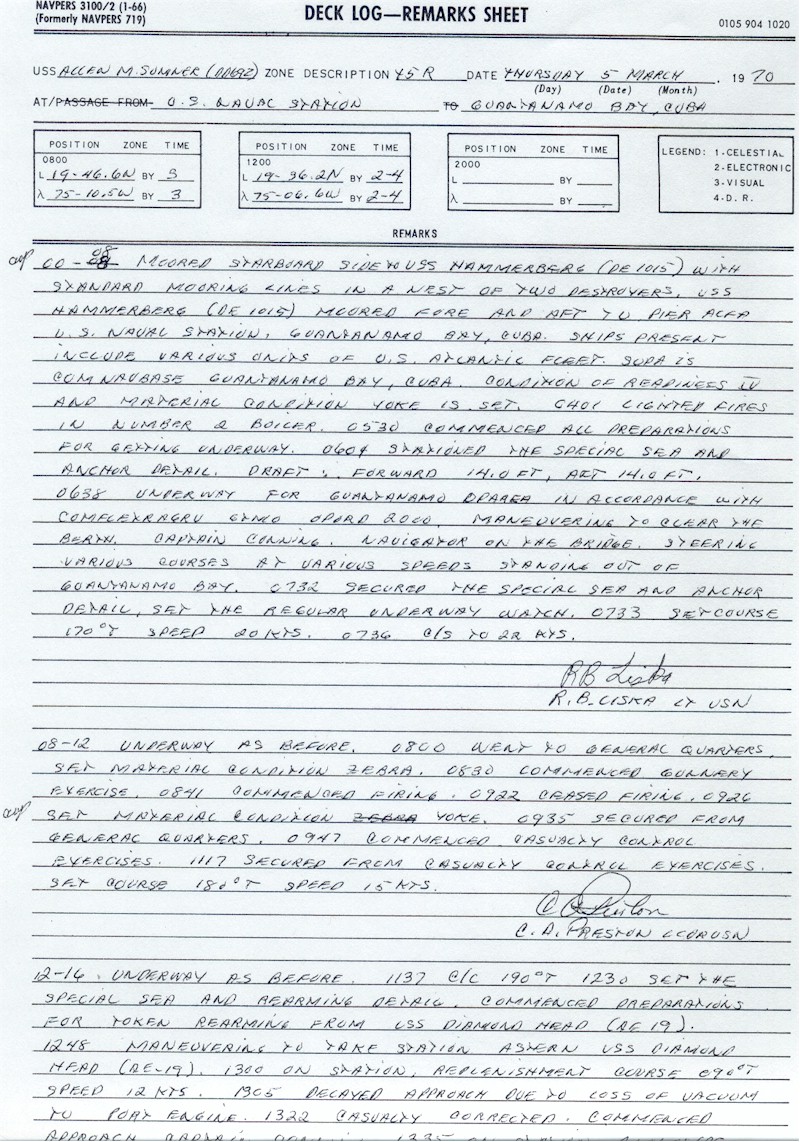 NAVPERS 3100/2 (1-66)
(Formerly NAVPERS 719)
DECK LOG—REMARKS SHEET
0105 904 1020
USS ALLEN M. SUMNER (DD692) ZONE DESCRIPTION +5 R DATE THURSDAY 5 MARCH , 19 70
(Day) (Date) (Month)
AT/PASSAGE FROM U.S. NAVAL STATION TO GUANTANAMO BAY, CUBA
POSITION ZONE TIME
0800
L 19-46.6N BY 3
λ 75-10.5W BY 3
POSITION ZONE TIME
1200
L 19-36.2N BY 2-4
λ 75-06.6W BY 2-4
POSITION ZONE TIME
2000
L BY
λ BY
LEGEND: 1-CELESTIAL
2-ELECTRONIC
3-VISUAL
4-D. R.
REMARKS
00-08 MOORED STARBOARD SIDE TO USS HAMMERBERG (DE 1015) WITH
STANDARD MOORING LINES IN A NEST OF TWO DESTROYERS, USS
HAMMERBERG (DE 1015) MOORED FORE AND AFT TO PIER ALFA
U.S. NAVAL STATION, GUANTANAMO BAY, CUBA. SHIPS PRESENT
INCLUDE VARIOUS UNITS OF U.S. ATLANTIC FLEET. SOPA IS
COMNAVBASE GUANTANAMO BAY, CUBA. CONDITION OF READINESS IV
AND MATERIAL CONDITION YOKE IS SET. 0401 LIGHTED FIRES
IN NUMBER 2 BOILER. 0530 COMMENCED ALL PREPARATIONS
FOR GETTING UNDERWAY. 0604 STATIONED THE SPECIAL SEA AND
ANCHOR DETAIL. DRAFT: FORWARD 14.0 FT, AFT 14.0 FT.
0638 UNDERWAY FOR GUANTANAMO OPAREA IN ACCORDANCE WITH
COMFLETRAGRU GTMO OPORD 2000. MANEUVERING TO CLEAR THE
BERTH. CAPTAIN CONNING. NAVIGATOR ON THE BRIDGE. STEERING
VARIOUS COURSES AT VARIOUS SPEEDS STANDING OUT OF
GUANTANAMO BAY. 0732 SECURED THE SPECIAL SEA AND ANCHOR
DETAIL, SET THE REGULAR UNDERWAY WATCH. 0733 SET COURSE
170°T SPEED 20 KTS. 0736 C/S TO 22 KTS.
RB Liska
R.B. LISKA LT USN
08-12 UNDERWAY AS BEFORE. 0800 WENT TO GENERAL QUARTERS,
SET MATERIAL CONDITION ZEBRA. 0830 COMMENCED GUNNERY
EXERCISE. 0841 COMMENCED FIRING. 0922 CEASED FIRING. 0926
SET MATERIAL CONDITION ZEBRA YOKE. 0935 SECURED FROM
GENERAL QUARTERS. 0947 COMMENCED CASUALTY CONTROL
EXERCISES. 1117 SECURED FROM CASUALTY CONTROL EXERCISES.
SET COURSE 180°T SPEED 15 KTS.
C A Preston
C. A. PRESTON LCDR USN
12-16 UNDERWAY AS BEFORE. 1137 C/C 190°T 1230 SET THE
SPECIAL SEA AND REARMING DETAIL. COMMENCED PREPARATIONS
FOR TOKEN REARMING FROM USS DIAMOND HEAD (AE 19).
1248 MANEUVERING TO TAKE STATION ASTERN USS DIAMOND
HEAD (AE-19). 1300 ON STATION, REPLENISHMENT COURSE 090°T
SPEED 12 KTS. 1305 DELAYED APPROACH DUE TO LOSS OF VACUUM
TO PORT ENGINE. 1322 CASUALTY CORRECTED. COMMENCED
APPROACH CAPTAIN